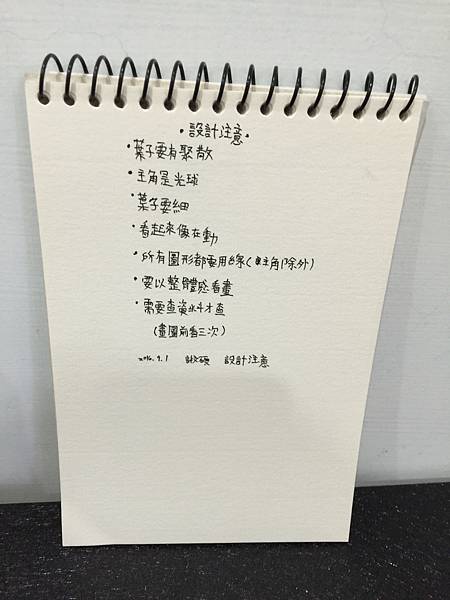 ·設計注意·
·葉子要有聚散
·主角是光球
·葉子要細
·看起來像在動
·所有圖形都要用線(主角除外)
·要以整體感看畫
·需要查資料才查
(畫圖前看三次)
2016.9.1 設計注意